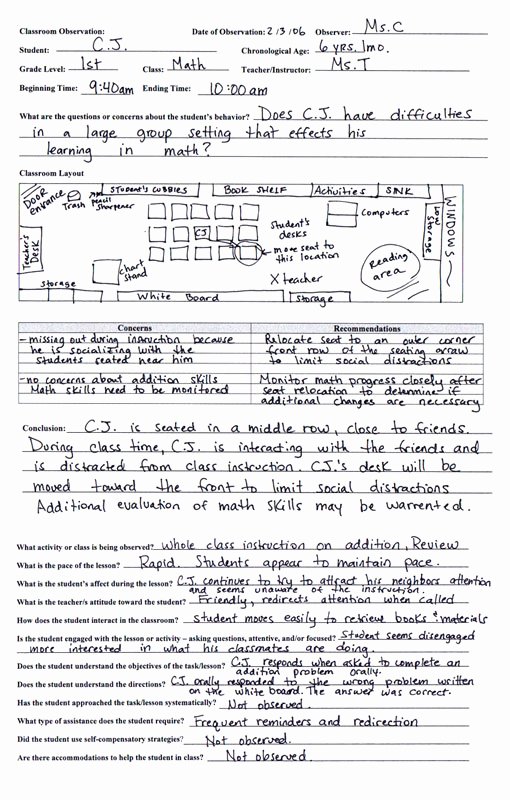 Classroom Observation: Date of Observation: 2/3/06 Observer: Ms.C
Student: C.J. Chronological Age: 6 yrs. 1mo.
Grade Level: 1st Class: Math Teacher/Instructor: Ms.T
Beginning Time: 9:40am Ending Time: 10:00 am
What are the questions or concerns about the student's behavior? Does C.J. have difficulties
in a large group setting that effects his
learning in math?
Classroom Layout
Door entrance
Trash
pencil sharpener
Student's cubbies
Book shelf
Activities
Sink
Windows
Low Storage
Computers
Student's desks
CJ
move seat to this location
Teacher's Desk
Chart Stand
X teacher
Reading area
Storage
White Board
Storage
Concerns Recommendations
- missing out during insruction because Relocate seat to an outer corner
he is socializing with the front row of the seating array
students seated near him to limit social distractions
- no concerns about addition skills Monitor math progress closely after
Math skills need to be monitored seat relocation to determine if
additional changes are necessary
Conclusion: C.J. is seated in a middle row, close to friends.
During class time, C.J. is interacting with the friends and
is distracted from class instruction. CJ.'s desk will be
moved toward the front to limit social distractions
Additional evaluation of math skills may be warrented.
What activity or class is being observed? Whole class instruction on addition, Review
What is the pace of the lesson? Rapid. Students appear to maintain pace.
What is the student's affect during the lesson? C.J. continues to try to attract his neighbors attention
and seems unaware of the instruction.
What is the teacher's attitude toward the student? Friendly, redirects attention when called
How does the student interact in the classroom? Student moves easily to retrieve books & materials
Is the student engaged with the lesson or activity – asking questions, attentive, and/or focused? Student seems disengaged
more interested in what his classmates are doing.
Does the student understand the objectives of the task/lesson? C.J. responds when asked to complete an
addition problem orally.
Does the student understand the directions? C.J. orally responded to the wrong problem written
on the white board. The answer was correct.
Has the student approached the task/lesson systematically? Not observed.
What type of assistance does the student require? Frequent reminders and redirection
Did the student use self-compensatory strategies? Not observed.
Are there accommodations to help the student in class? Not observed.